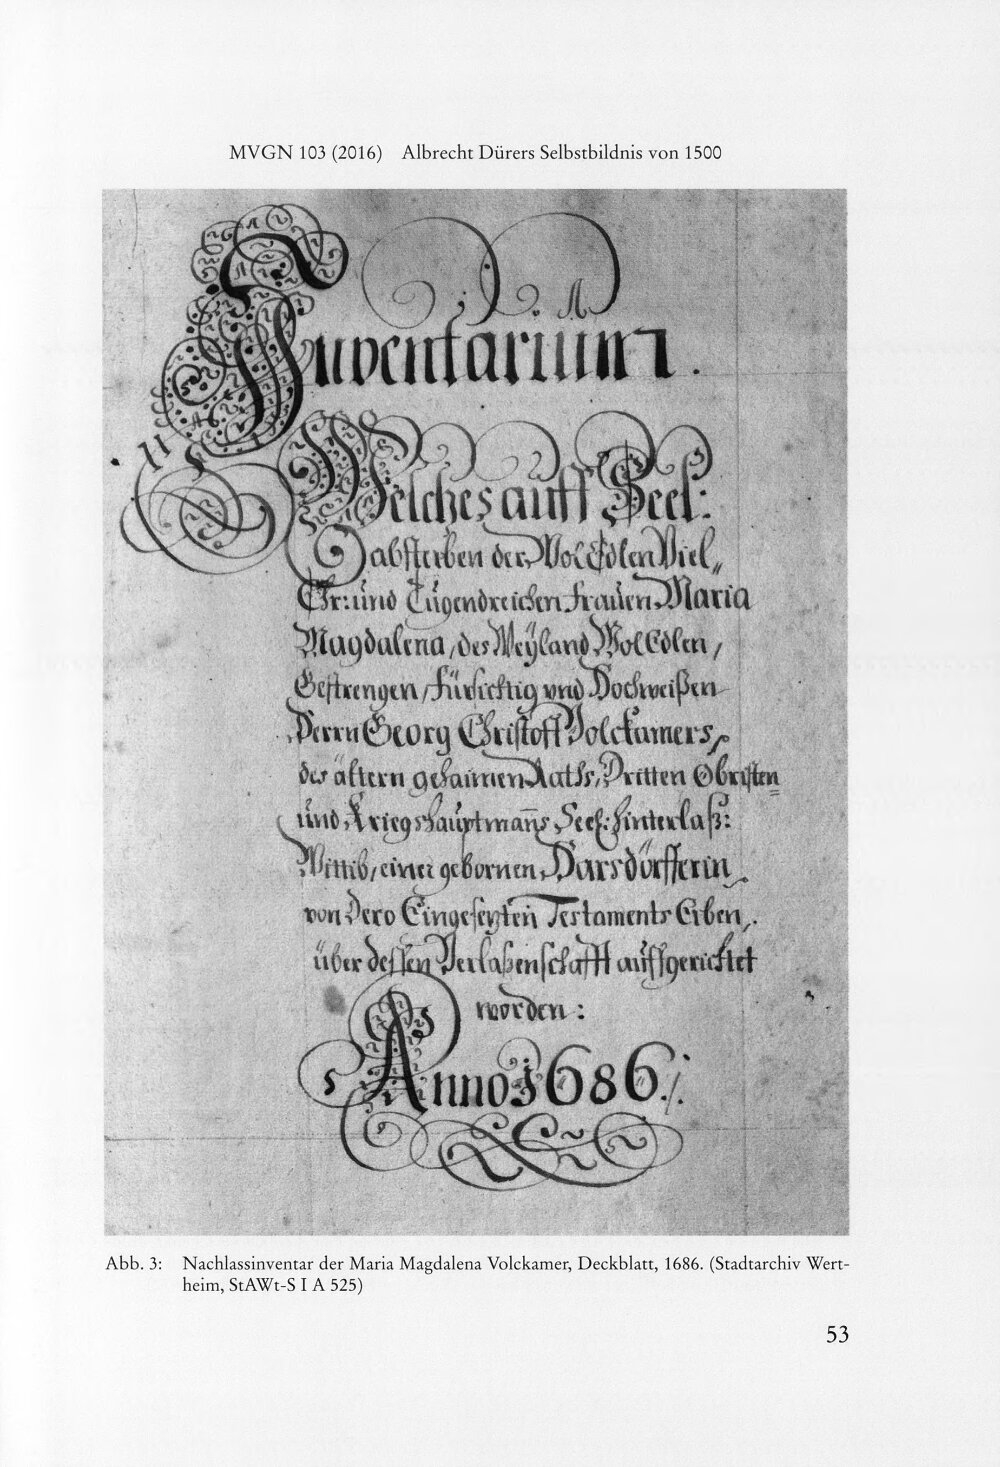 MVGN 103 (2016) Albrecht Dürers Selbstbildnis von 1500
Inventarium.
Welches auff Seel:
absterben der WolEdlen Viel„
Ehr: und Tugendreichen Frauen Maria
Magdalena, des Weyland WolEdlen,
Gestrengen, Fürsichtig vnd Hochweißen
Herrn Georg Christoff Volckamers,
des ältern gehaimen Raths, Dritten Obristen
und Kriegshauptmanns Seel: hinterlaß:
Wittib, einer gebornen Harsdörfferin
von Dero Eingesezten Testaments Erben,
über dessen Verlaßenschafft auffgerichtet
worden:
Anno 1686.
Abb. 3: Nachlassinventar der Maria Magdalena Volckamer, Deckblatt, 1686. (Stadtarchiv Wert-
heim, StAWt-S I A 525)
53